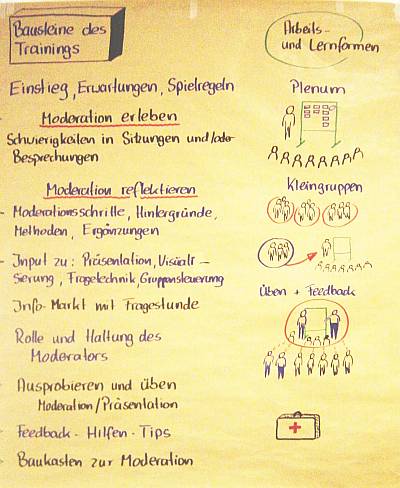 Bausteine des
Trainings
Arbeits-
und Lernformen
Einstieg, Erwartungen, Spielregeln
Plenum
Moderation erleben
Schwierigkeiten in Sitzungen und/oder
Besprechungen
Moderation reflektieren
Kleingruppen
- Moderationsschritte, Hintergründe,
Methoden, Ergänzungen
- Input zu: Präsentation, Visuali-
sierung, Fragetechnik, Gruppensteuerung
Üben + Feedback
Info-Markt mit Fragestunde
Rolle und Haltung des
Moderators
Ausprobieren und üben
Moderation/Präsentation
Feedback - Hilfen - Tips
Baukasten zur Moderation